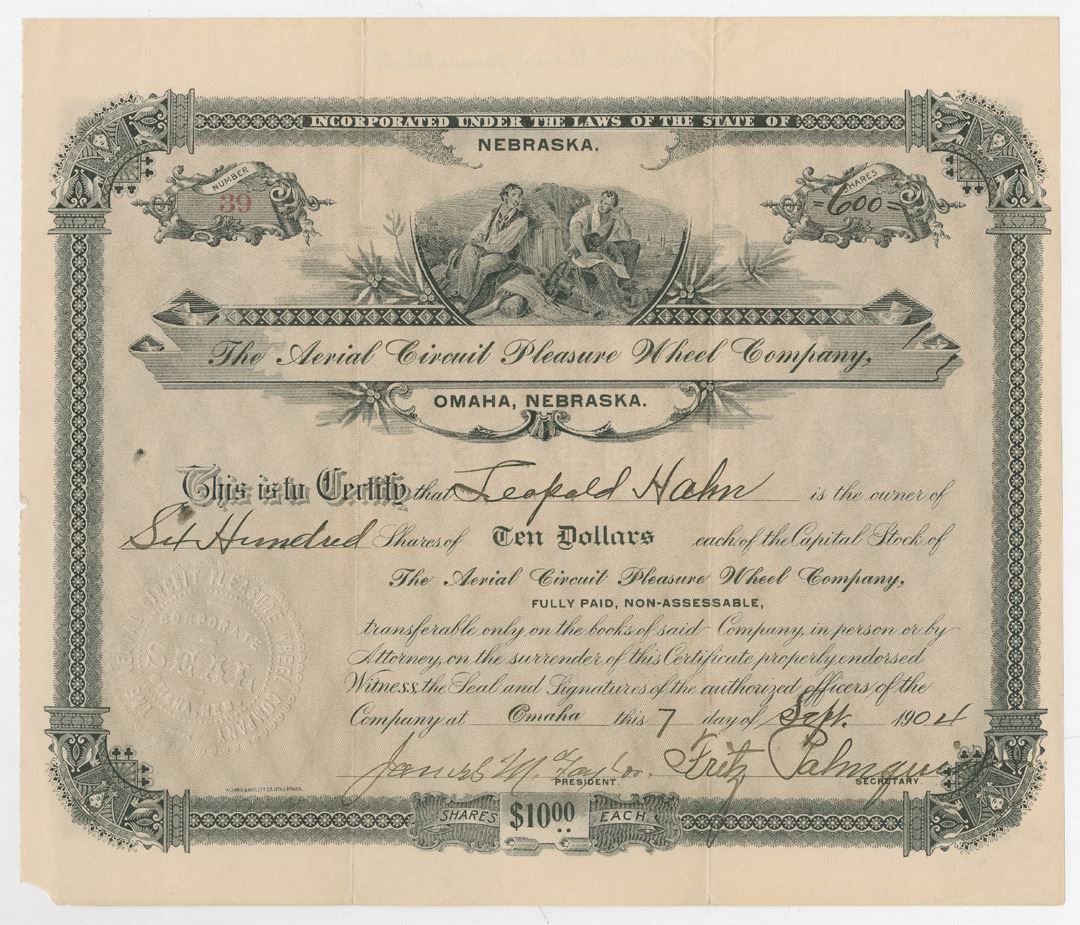 INCORPORATED UNDER THE LAWS OF THE STATE OF
NEBRASKA.
NUMBER
39
SHARES
=600=
The Aerial Circuit Pleasure Wheel Company,
OMAHA, NEBRASKA.
This is to Certify that Leopold Hahn is the owner of
Six Hundred Shares of Ten Dollars each of the Capital Stock of
The Aerial Circuit Pleasure Wheel Company,
FULLY PAID, NON-ASSESSABLE,
transferable only on the books of said Company, in person or by
Attorney, on the surrender of this Certificate properly endorsed
Witness the Seal and Signatures of the authorized officers of the
Company at Omaha this 7 day of Sept. 1904
James M. Taylor. Fritz
PRESIDENT. SECRETARY.
THE AERIAL CIRCUIT PLEASURE WHEEL COMPANY
CORPORATE
SEAL
OMAHA, NEB.
SHARES $10.00 EACH.